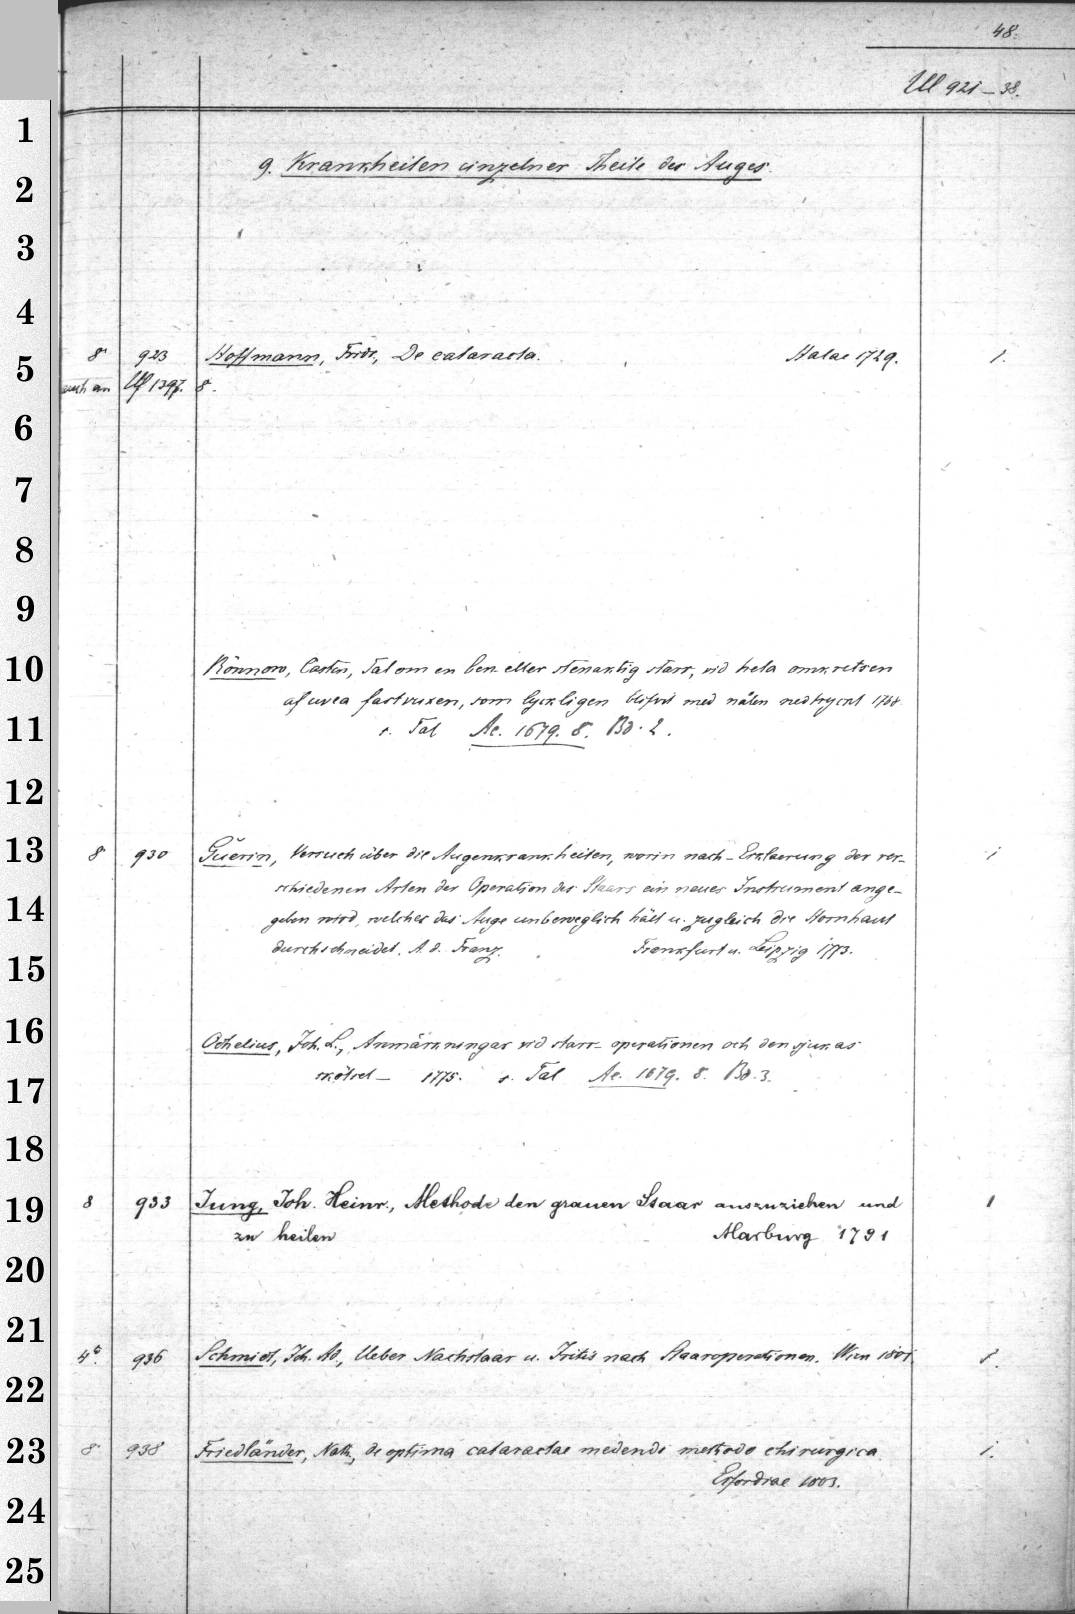 48.
Ul 921-38.
1
2
3
4
5
6
7
8
9
10
11
12
13
14
15
16
17
18
19
20
21
22
23
24
25
9. Krankheiten einzelner Theile des Auges.
8 923 Hoffmann, Fridr., De cataracta. Halae 1729. 1.
auch an Uf 1397. 8.
Rönnow, Casten, Tal om en ben eller stenaktig starr, vid hela omkretsen
af uvea fastvuxen, som lyckligen blifvit med nålen nedtryckt 1768.
s. Tal Ac. 1679. 8. Bd. 2.
8 930 Guérin, Versuch über die Augenkrankheiten, worin nach Erklaerung der ver-
schiedenen Arten der Operation des Staars ein neues Instrument ange-
geben wird, welches das Auge unbeweglich hält u. zugleich die Hornhaut
durchschneidet. A. d. Franz. Frankfurt u. Leipzig 1773. 1
Odhelius, Joh. L., Anmärkningar vid starr-operationen och den sjukas
skötsel - 1775. s. Tal Ac. 1679. 8. Bd. 3.
8 933 Jung, Joh. Heinr., Methode den grauen Staar auszuziehen und 1
zu heilen Marburg 1791
4° 936 Schmidt, Joh. Ad., Ueber Nachstaar u. Iritis nach Staaroperationen. Wien 1801. 1.
8 938 Friedländer, Nath., de optima cataractae medendi methodo chirurgica 1.
Erfordiae 1803.